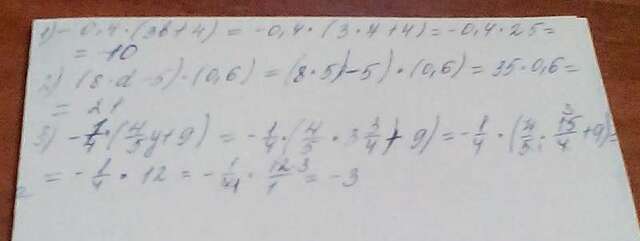 1) - 0,4 · (3b+4) = -0,4 · (3·7+4) = -0,4 · 25 =
= -10
2) (8·d-5) · (0,6) = (8·5)-5) · (0,6) = 35·0,6 =
= 21
3) -1/4 · (4/5y+9) = -1/4 · (4/5 · 3 3/4)+9) = -1/4 · (4/5 · 15/4 3 +9) =
= -1/4 · 12 = -1/4 · 12/1 3 = -3